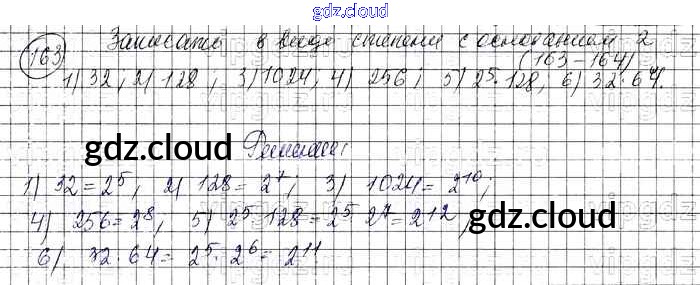 gdz.cloud
163 Записать в виде степени с основанием 2
(163-164)
1) 32; 2) 128; 3) 1024; 4) 256; 5) 2⁵·128; 6) 32·64.
gdz.cloud
Решение:
1) 32=2⁵; 2) 128=2⁷; 3) 1024=2¹⁰;
4) 256=2⁸; 5) 2⁵·128=2⁵·2⁷=2¹²;
gdz.cloud
6) 32·64=2⁵·2⁶=2¹¹
gdz.cloud